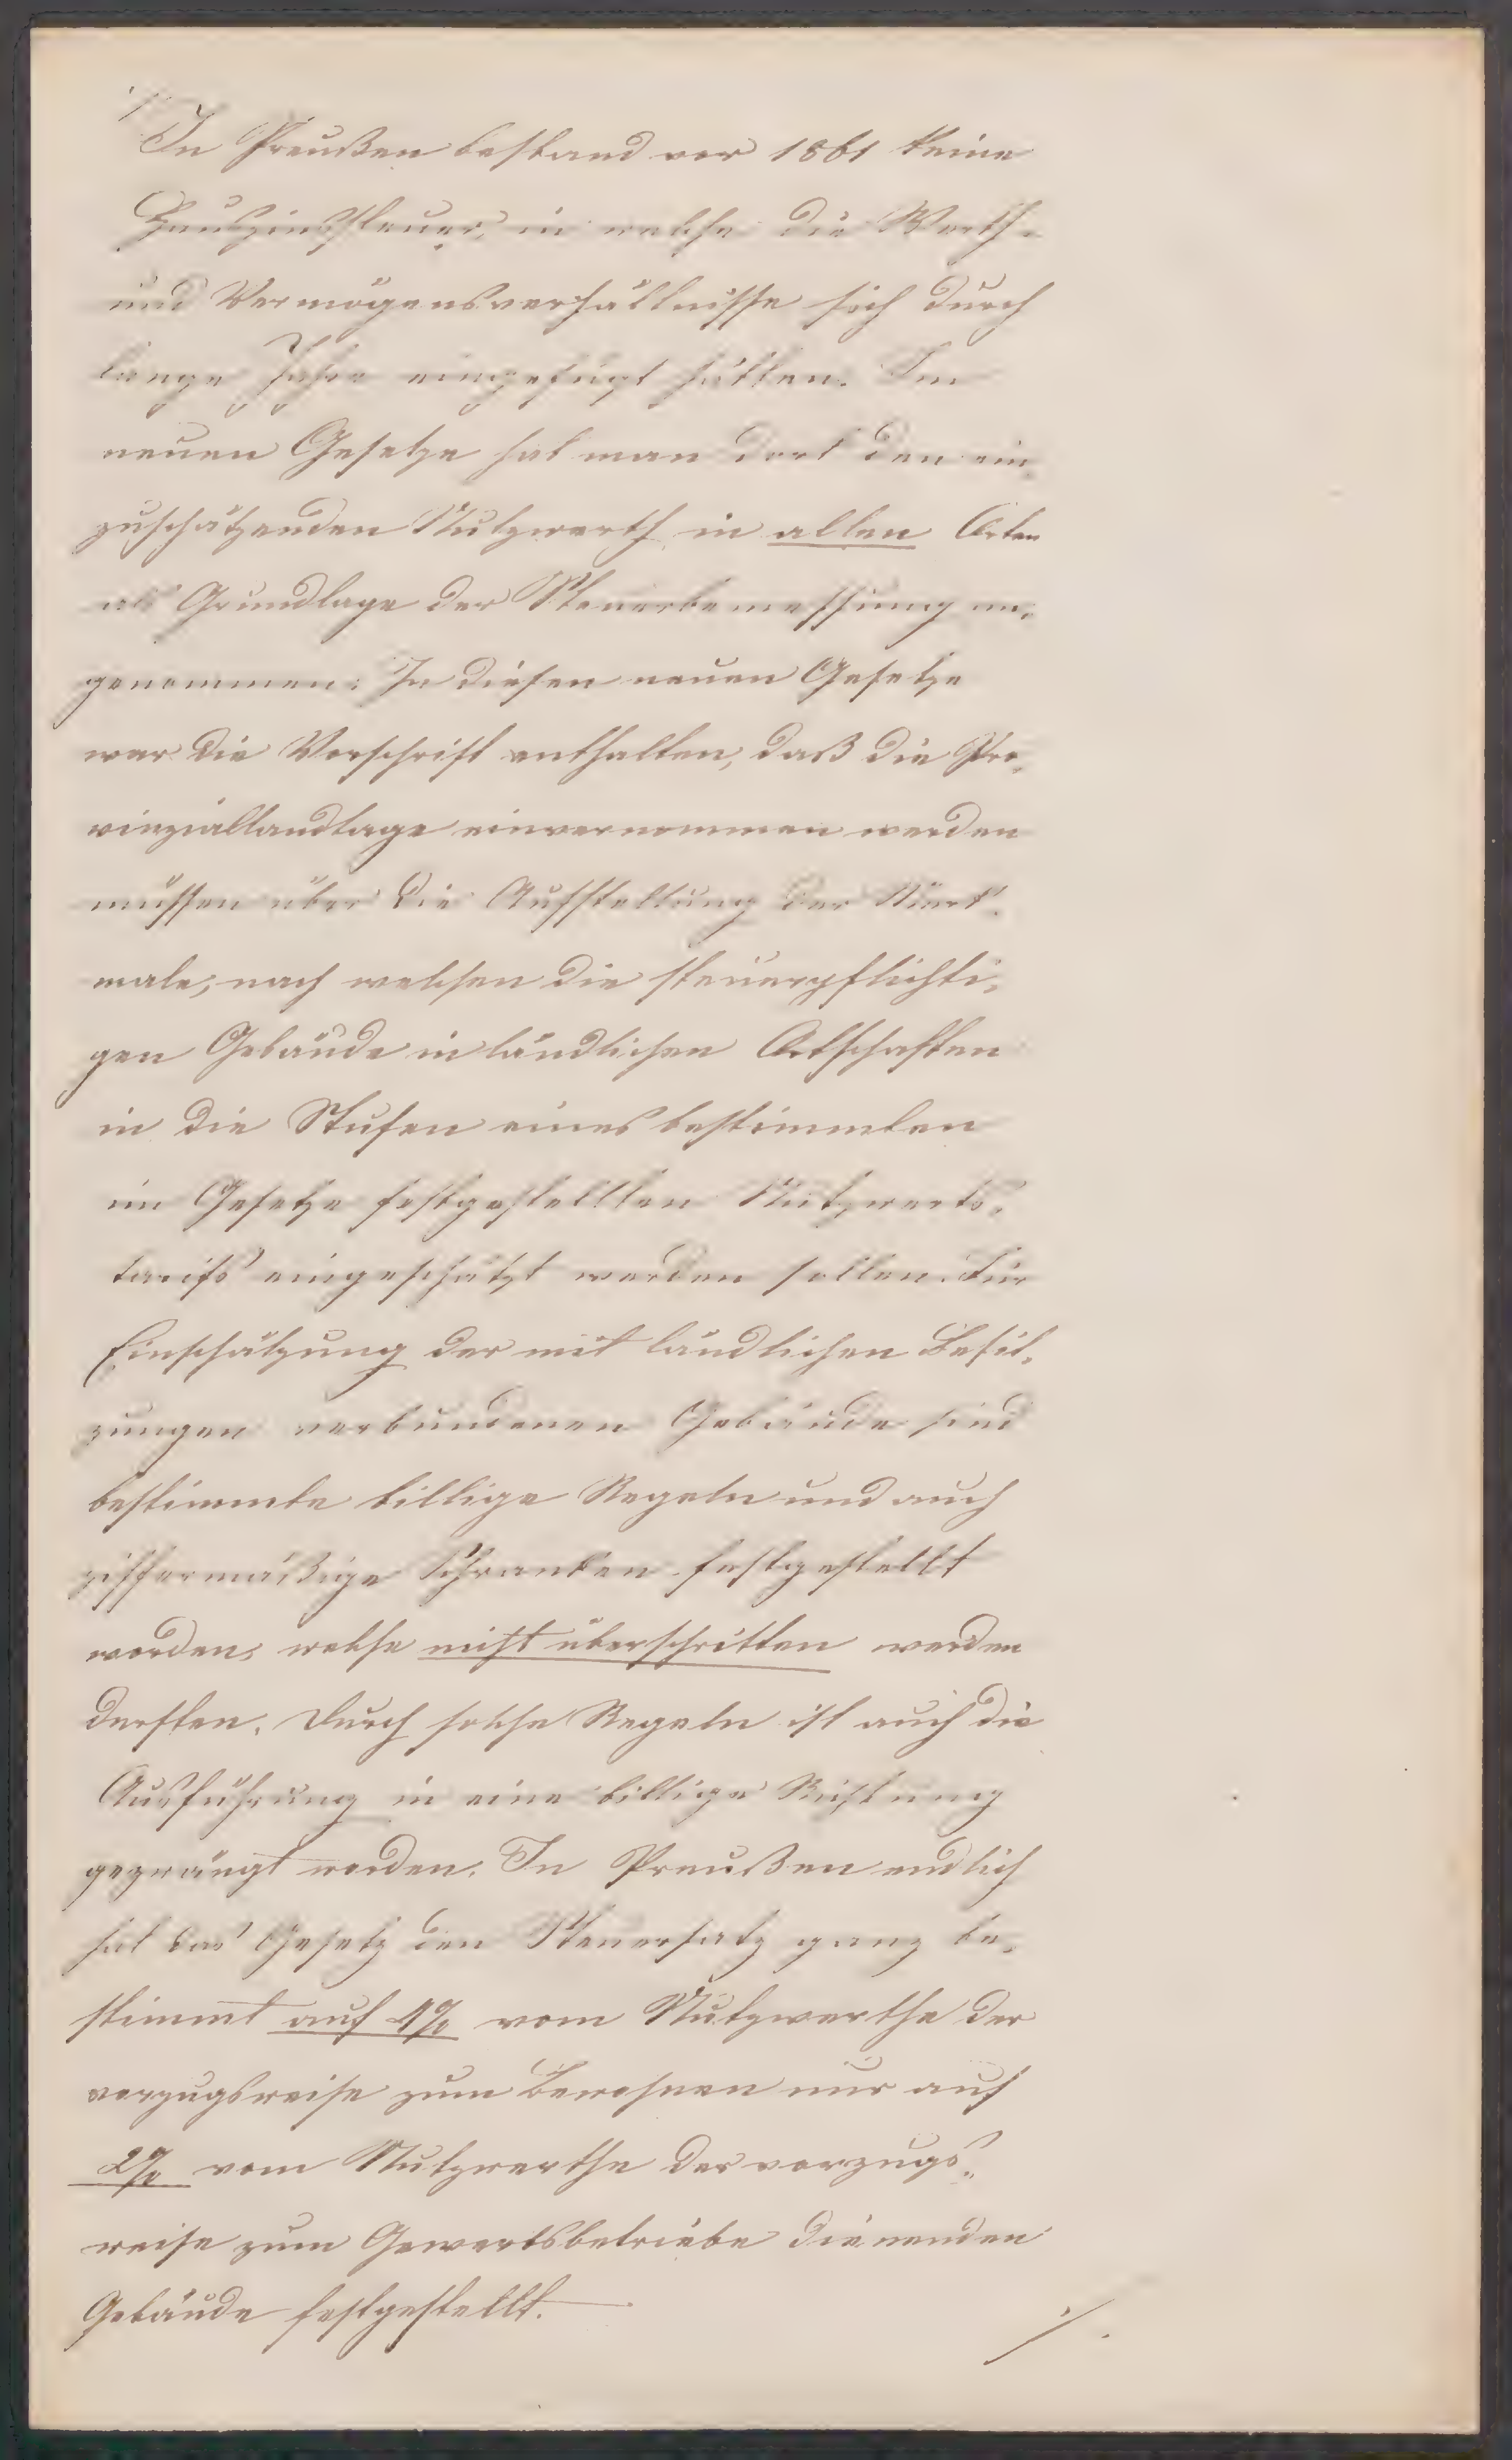 ./.
In Preußen bestand vor 1861 keine
Hauszinssteuer, in welche die Werth-
und Vermögensverhältnisse sich durch
lange Jahre eingefügt hätten. Im
neuen Gesetze hat man dort den ein-
zuschätzenden Nutzwerth in allen Orten
als Grundlage der Steuerbemessung an-
genommen. In diesen neuen Gesetze
war die Vorschrift enthalten, daß die Pro-
vinziallandtage einvernommen werden
müssen über die Aufstellung der Merk-
male, nach welchen die steuerpflichti-
gen Gebäude in ländlichen Ortschaften
in die Stufen eines bestimmten
im Gesetze festgestellten Nutzwerts-
tarifs eingeschätzt werden sollen. Für
Einschätzung der mit ländlichen Besit-
zungen verbundenen Gebäude sind
bestimmte billige Regeln und auch
ziffermäßige Schranken festgestellt
worden, welche nicht überschritten werden
durften. Durch solche Regeln ist auch die
Ausführung in eine billige Richtung
gezwängt worden. In Preußen endlich
hat das Gesetz den Steuersatz ganz be-
stimmt auf 4% vom Nutzwerthe der
vorzugsweise zum Bewohnen nur auf
2% vom Nutzwerthe der vorzugs-
weise zum Gewerbsbetriebe dienenden
Gebäude festgestellt.
./.